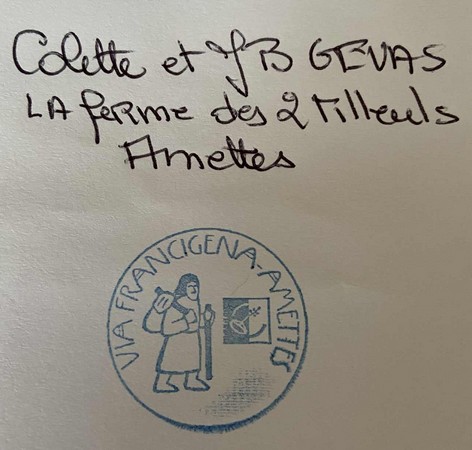 Colette et JB GEVAS
LA ferme des 2 Tilleuls
Amettes
VIA FRANCIGENA-AMETTES